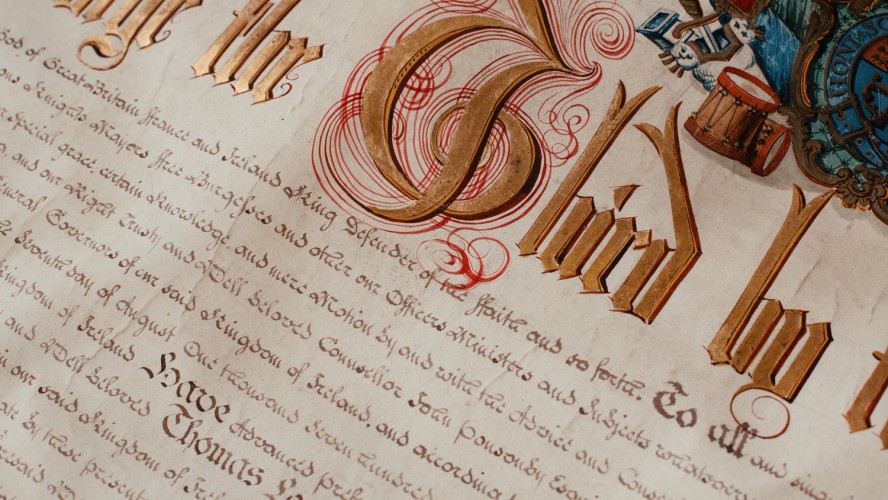 the Third by
God, of Great Britain ffrance and Ireland King Defender of the ffaith and so forth. To all and
Knights Mayors ffree Burgesses and other our Officers Ministers and Subjects
Special grace, certain Knowledge and mere Motion by and with the Advice and
and our Right Trusty and Well Beloved Counsellor John Ponsonby
Governors of our said Kingdom of Ireland, and according
Seventh day of August One thousand Seven hundred
of Ireland Have Advanced
and Well Beloved Thomas
in our said Kingdom of
by these